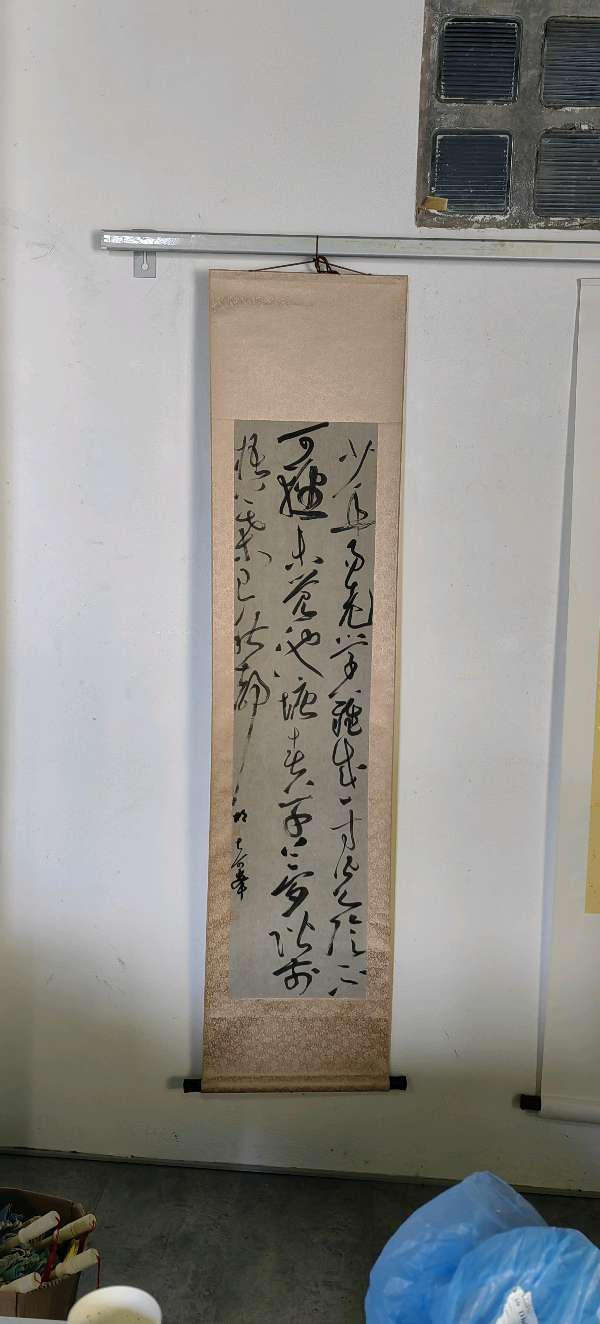 少年易老學難成一寸光陰不
可輕未覺池塘春草夢階前
梧葉已秋聲